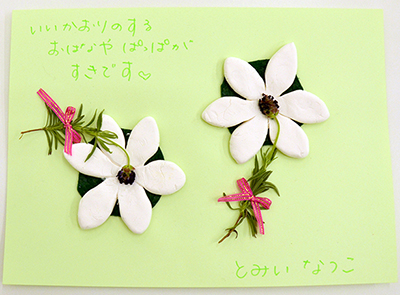 いいかおりのする
おはなや はっぱが
すきです♡
とみい なつこ